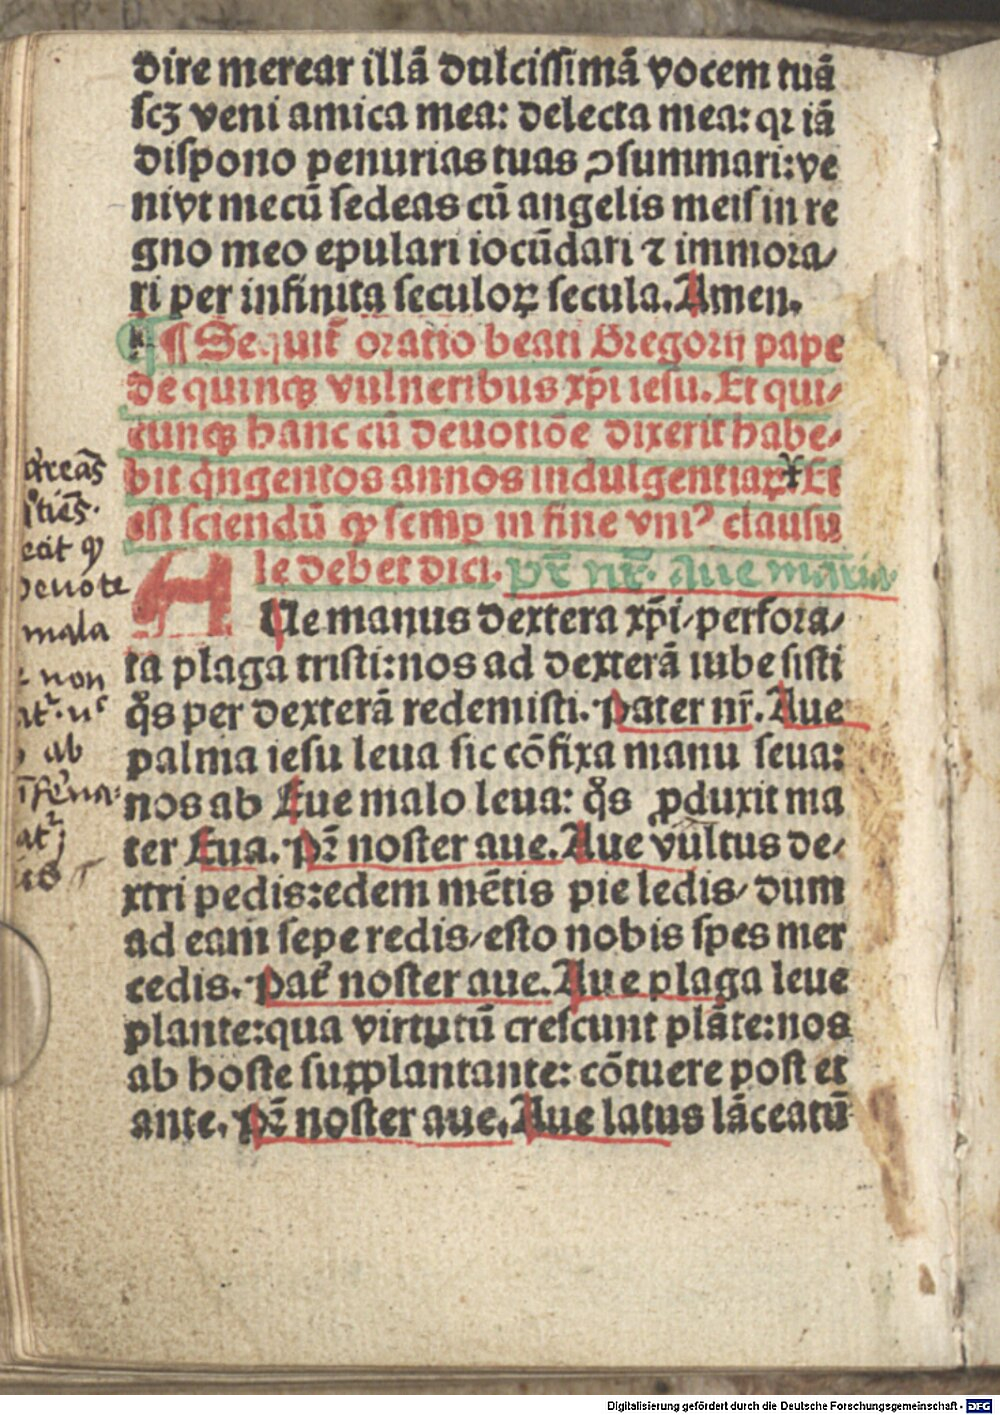 dire merear illā dulcissimā vocem tuā
scꝫ veni amica mea: delecta mea: qꝛ iā
dispono penurias tuas ꝯsummari: ve
nivt mecū sedeas cū angelis meis in re
gno meo epulari iocūdari ⁊ immora⸗
ri per infinita seculoꝝ secula. Amen.
¶ Sequit̄ oratio beati Gregorij pape
de quinqꝫ vulneribus xp̄i iesu. Et qui⸗
cunqꝫ hanc cū deuotiōe dixerit habe⸗
bit qͥngentos annos indulgentiaꝝ Et
est sciendū ꝙ semꝑ in fine vniꝰ clausu
le debet dici. pr̄ nr̄. Aue maria
AUe manus dextera xp̄i/perfora⸗
ta plaga tristi: nos ad dexterā iube sisti
qͦs per dexterā redemisti. Pater nr̄. Aue
palma iesu leua sic cōfixa manu seua:
nos ab Eue malo leua: qͦs ꝓduxit ma
ter Eua. Pr̄ noster aue. Aue vultus de⸗
xtri pedis: edem mētis pie ledis/ dum
ad eam sepe redis/ esto nobis spes mer
cedis. Pat̄ noster aue. Aue plaga leue
plante: qua virtutū crescunt plāte: nos
ab hoste supplantante: cōtuere post et
ante. Pr̄ noster aue. Aue latus lāceatū
deuote
mala
non
ab